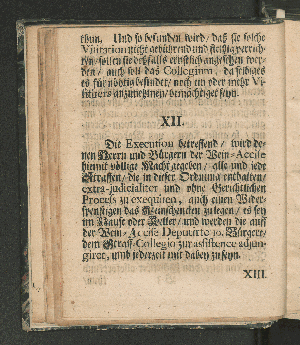 thun. Und so befunden wird / daß sie solche
Visitation nicht gebührend und fleißig verrich-
ten / sollen sie deßfalls ernstlich angesehen wer-
den / auch soll das Collegium, da selbiges
es für nöthig befindet / noch ein oder mehr Vi-
sitirers anzunehmen / bemächtiget seyn.
XII.
Die Execution betreffend / wird de-
nen Herrn und Bürgern der Wein-Accise
hiemit völlige Macht gegeben / alle und jede
Straffen / die in dieser Ordnung enthalten /
extra-judicialiter und ohne Gerichtlichen
Process zu exequiren, auch einen Wider-
spenstigen das Weinschencken zu legen / es sey
im Hause oder Keller / und werden die auff
der Wein-Accise Deputirte 10. Bürgere /
dem Straff-Collegio zur assistence adjun-
giret, umb jederzeit mit dabey zu seyn.
XIII.